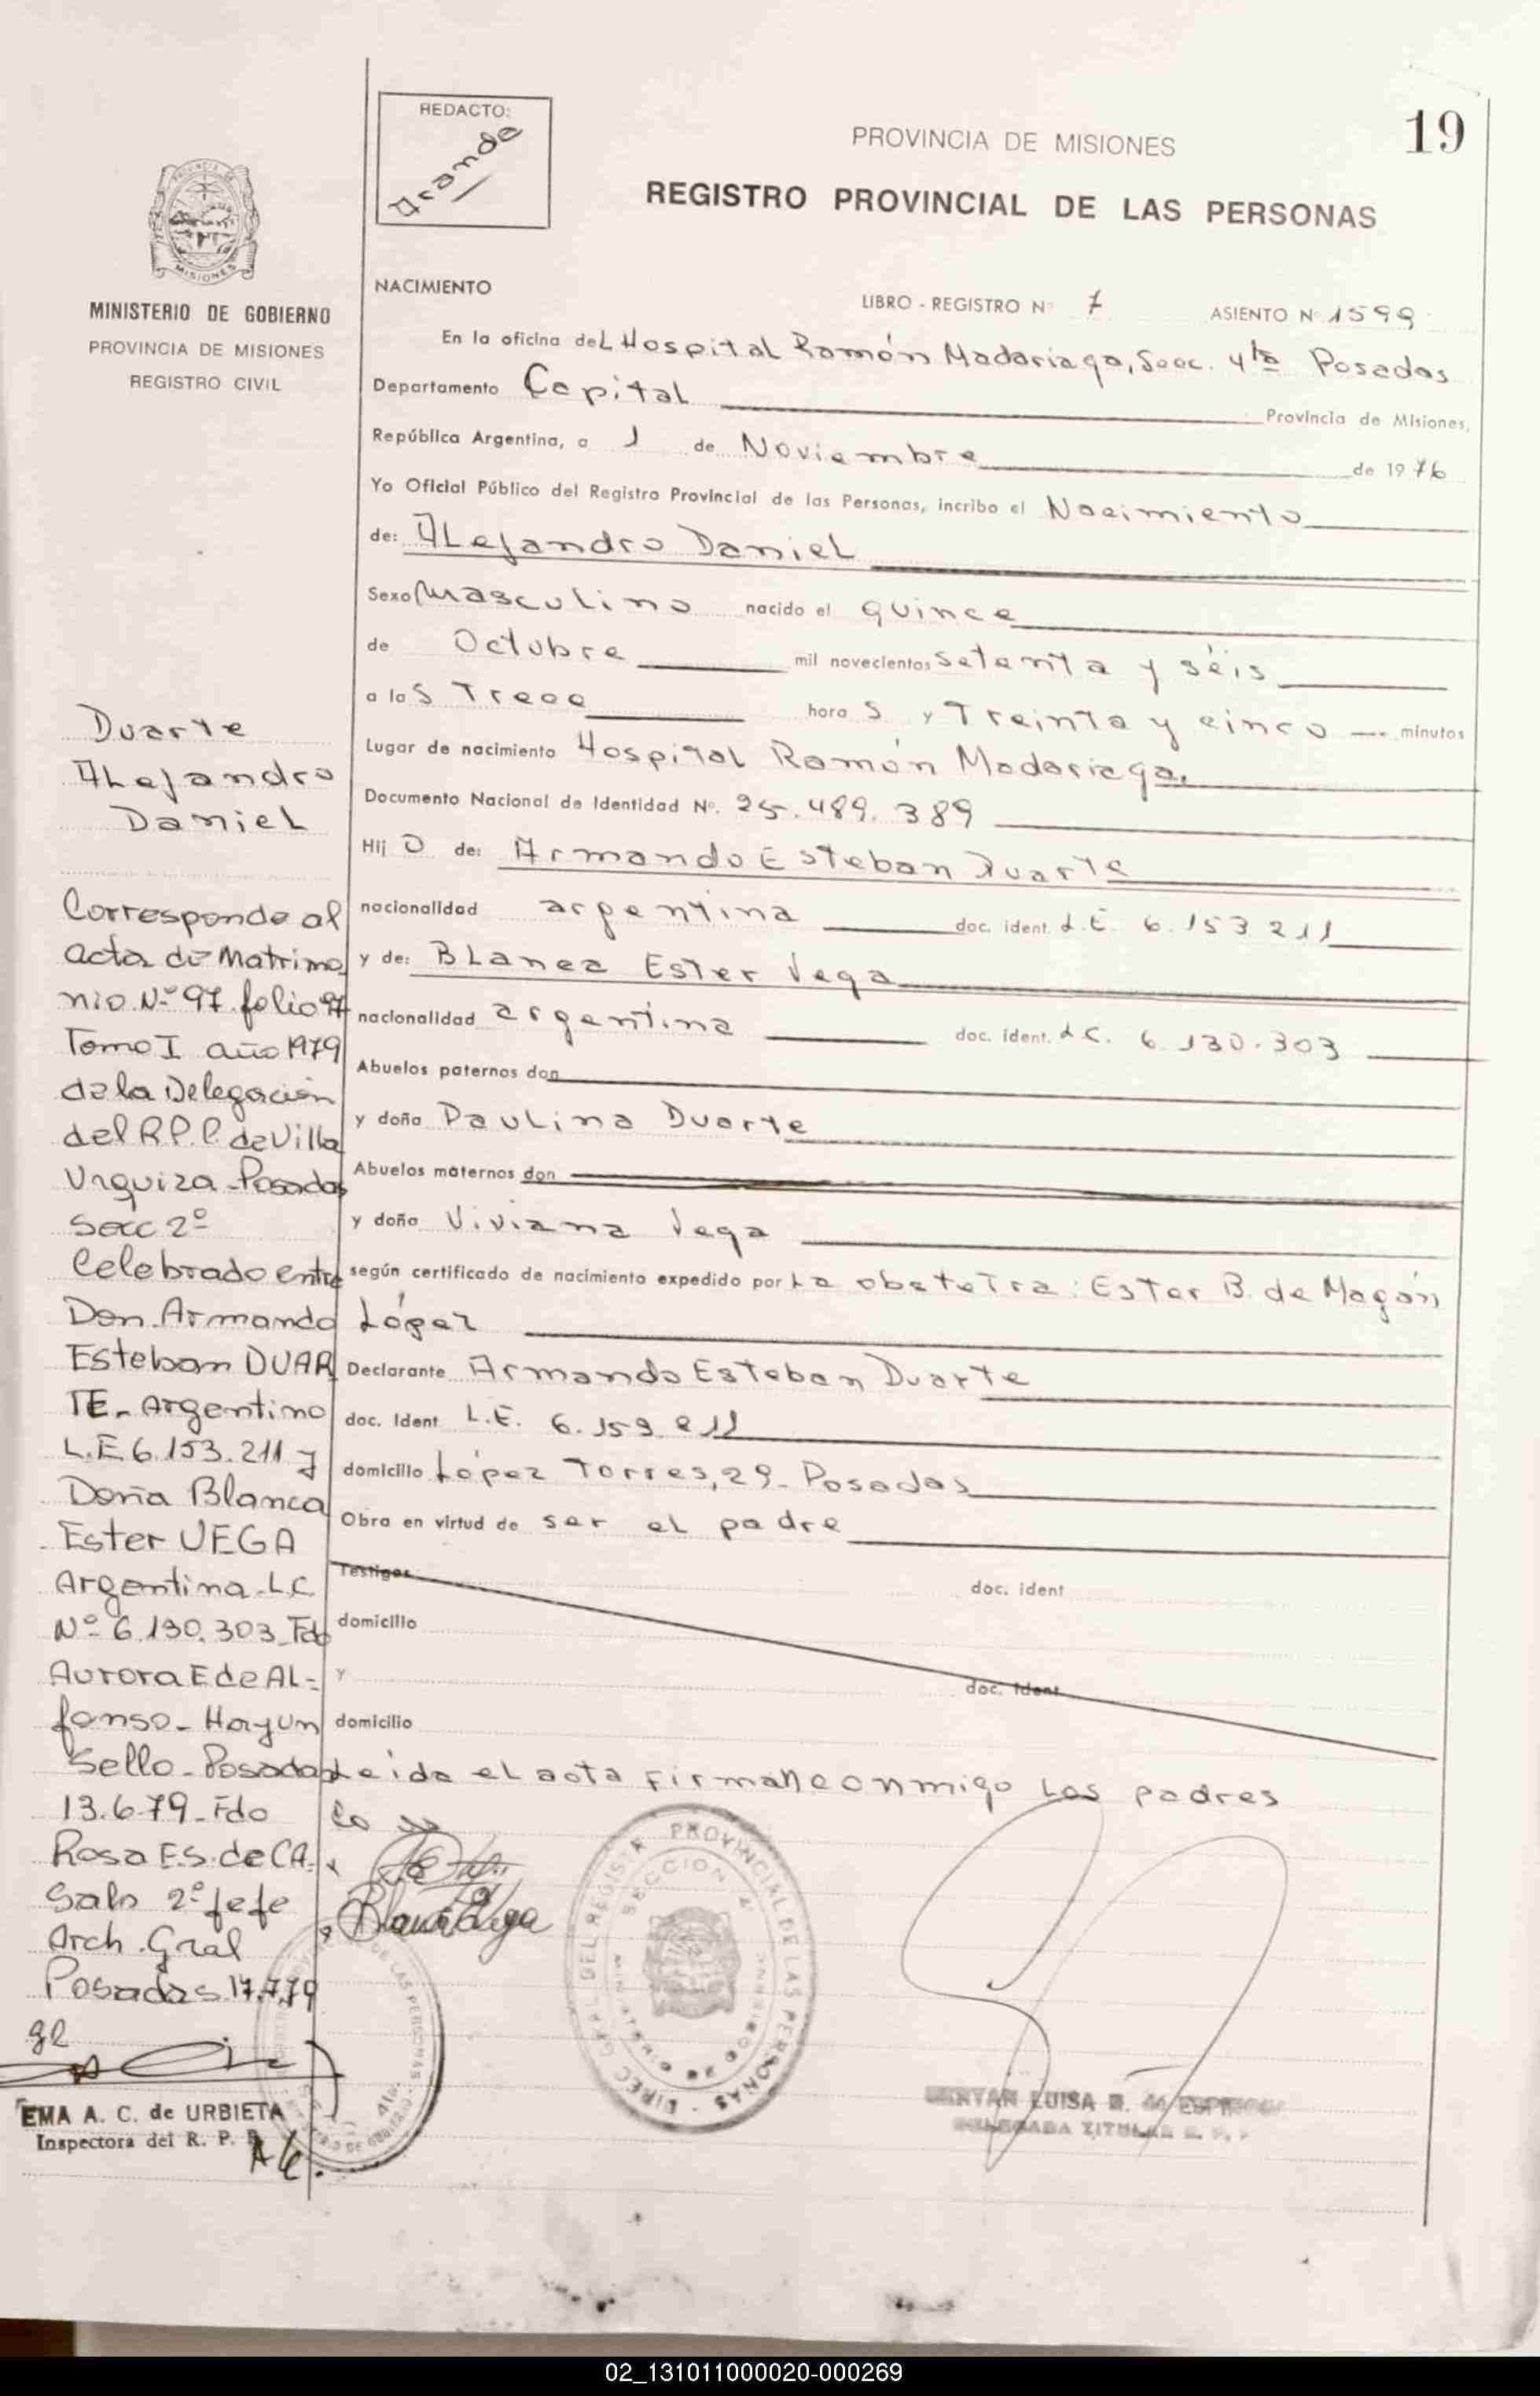 19
REDACTO:
Aranda
PROVINCIA DE MISIONES
REGISTRO PROVINCIAL DE LAS PERSONAS
MISIONES
MINISTERIO DE GOBIERNO
PROVINCIA DE MISIONES
REGISTRO CIVIL
NACIMIENTO
LIBRO - REGISTRO Nº 7 ASIENTO Nº 1599
En la oficina del Hospital Ramón Madariaga, Secc. 4ta Posadas
Departamento Capital Provincia de Misiones,
República Argentina, a 1 de Noviembre de 1976
Yo Oficial Público del Registro Provincial de las Personas, incribo el Nacimiento
de: Alejandro Daniel
Sexo Masculino nacido el quince
de Octubre mil novecientos setenta y séis
a las Trece horas y Treinta y cinco minutos
Lugar de nacimiento Hospital Ramón Madariaga.
Documento Nacional de Identidad Nº. 25.489.389
Hijo de: Armando Esteban Duarte
nacionalidad argentina doc. ident. L.E. 6.153 211
y de: Blanca Ester Vega
nacionalidad argentina doc. ident. L.C. 6.130.303
Abuelos paternos don
y doña Paulina Duarte
Abuelos maternos don
y doña Viviana Vega
según certificado de nacimiento expedido por La obstetra: Ester B. de Magán
López
Declarante Armando Esteban Duarte
doc. Ident L.E. 6.153.211
domicilio López Torres, 29- Posadas
Obra en virtud de ser el padre
Testigos doc. ident
domicilio
y doc. ident
domicilio
Leida el acta firman conmigo los padres
Blanca Vega
Duarte
Alejandro
Daniel
Corresponde al
acta de Matrimo
nio Nº 97 folio 97
Tomo I año 1979
de la Delegación
del R.P.P. de Villa
Urquiza - Posadas
Secc 2º
Celebrado entre
Don Armando
Esteban DUAR
TE - Argentino
L.E 6.153.211 y
Doña Blanca
Ester VEGA
Argentina - L.C
Nº 6.130.303 - Fdo
Aurora E de Al-
fonso - Hay un
Sello - Posadas
13.6.79 - Fdo
Rosa E.S. de CA.
Salo 2º jefe
Arch. Gral
Posadas 17.7.79
EMA A. C. de URBIETA
Inspectora del R. P. P.
DIREC GRAL DEL REGISTR PROVINCIAL DE LAS PERSONAS
SECCION 4
DE LAS PERSONAS
LUISA
TITULAR
02_131011000020-000269